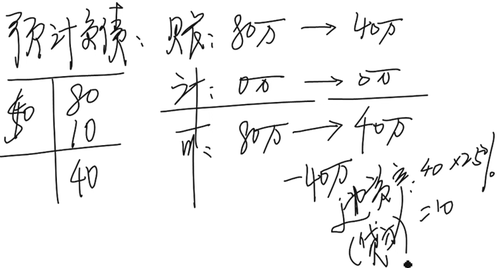 预计负债：
账：80万 → 40万
计：0万 → 0万
可：80万 → 40万
-40万
递资产：40×25%
=10
(贷方)
50
80
10
40